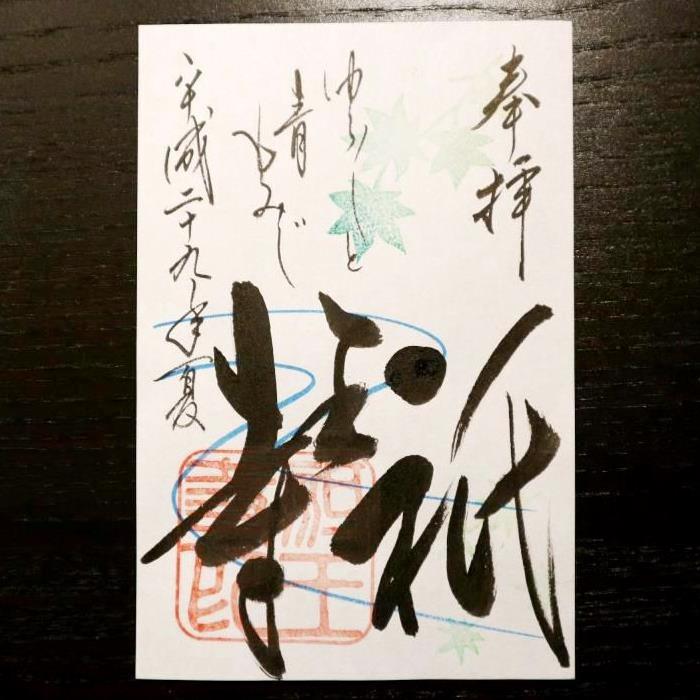 奉拝
ゆらりと
青
もみじ
祇王寺
平成二十九年夏
祇王
寺印